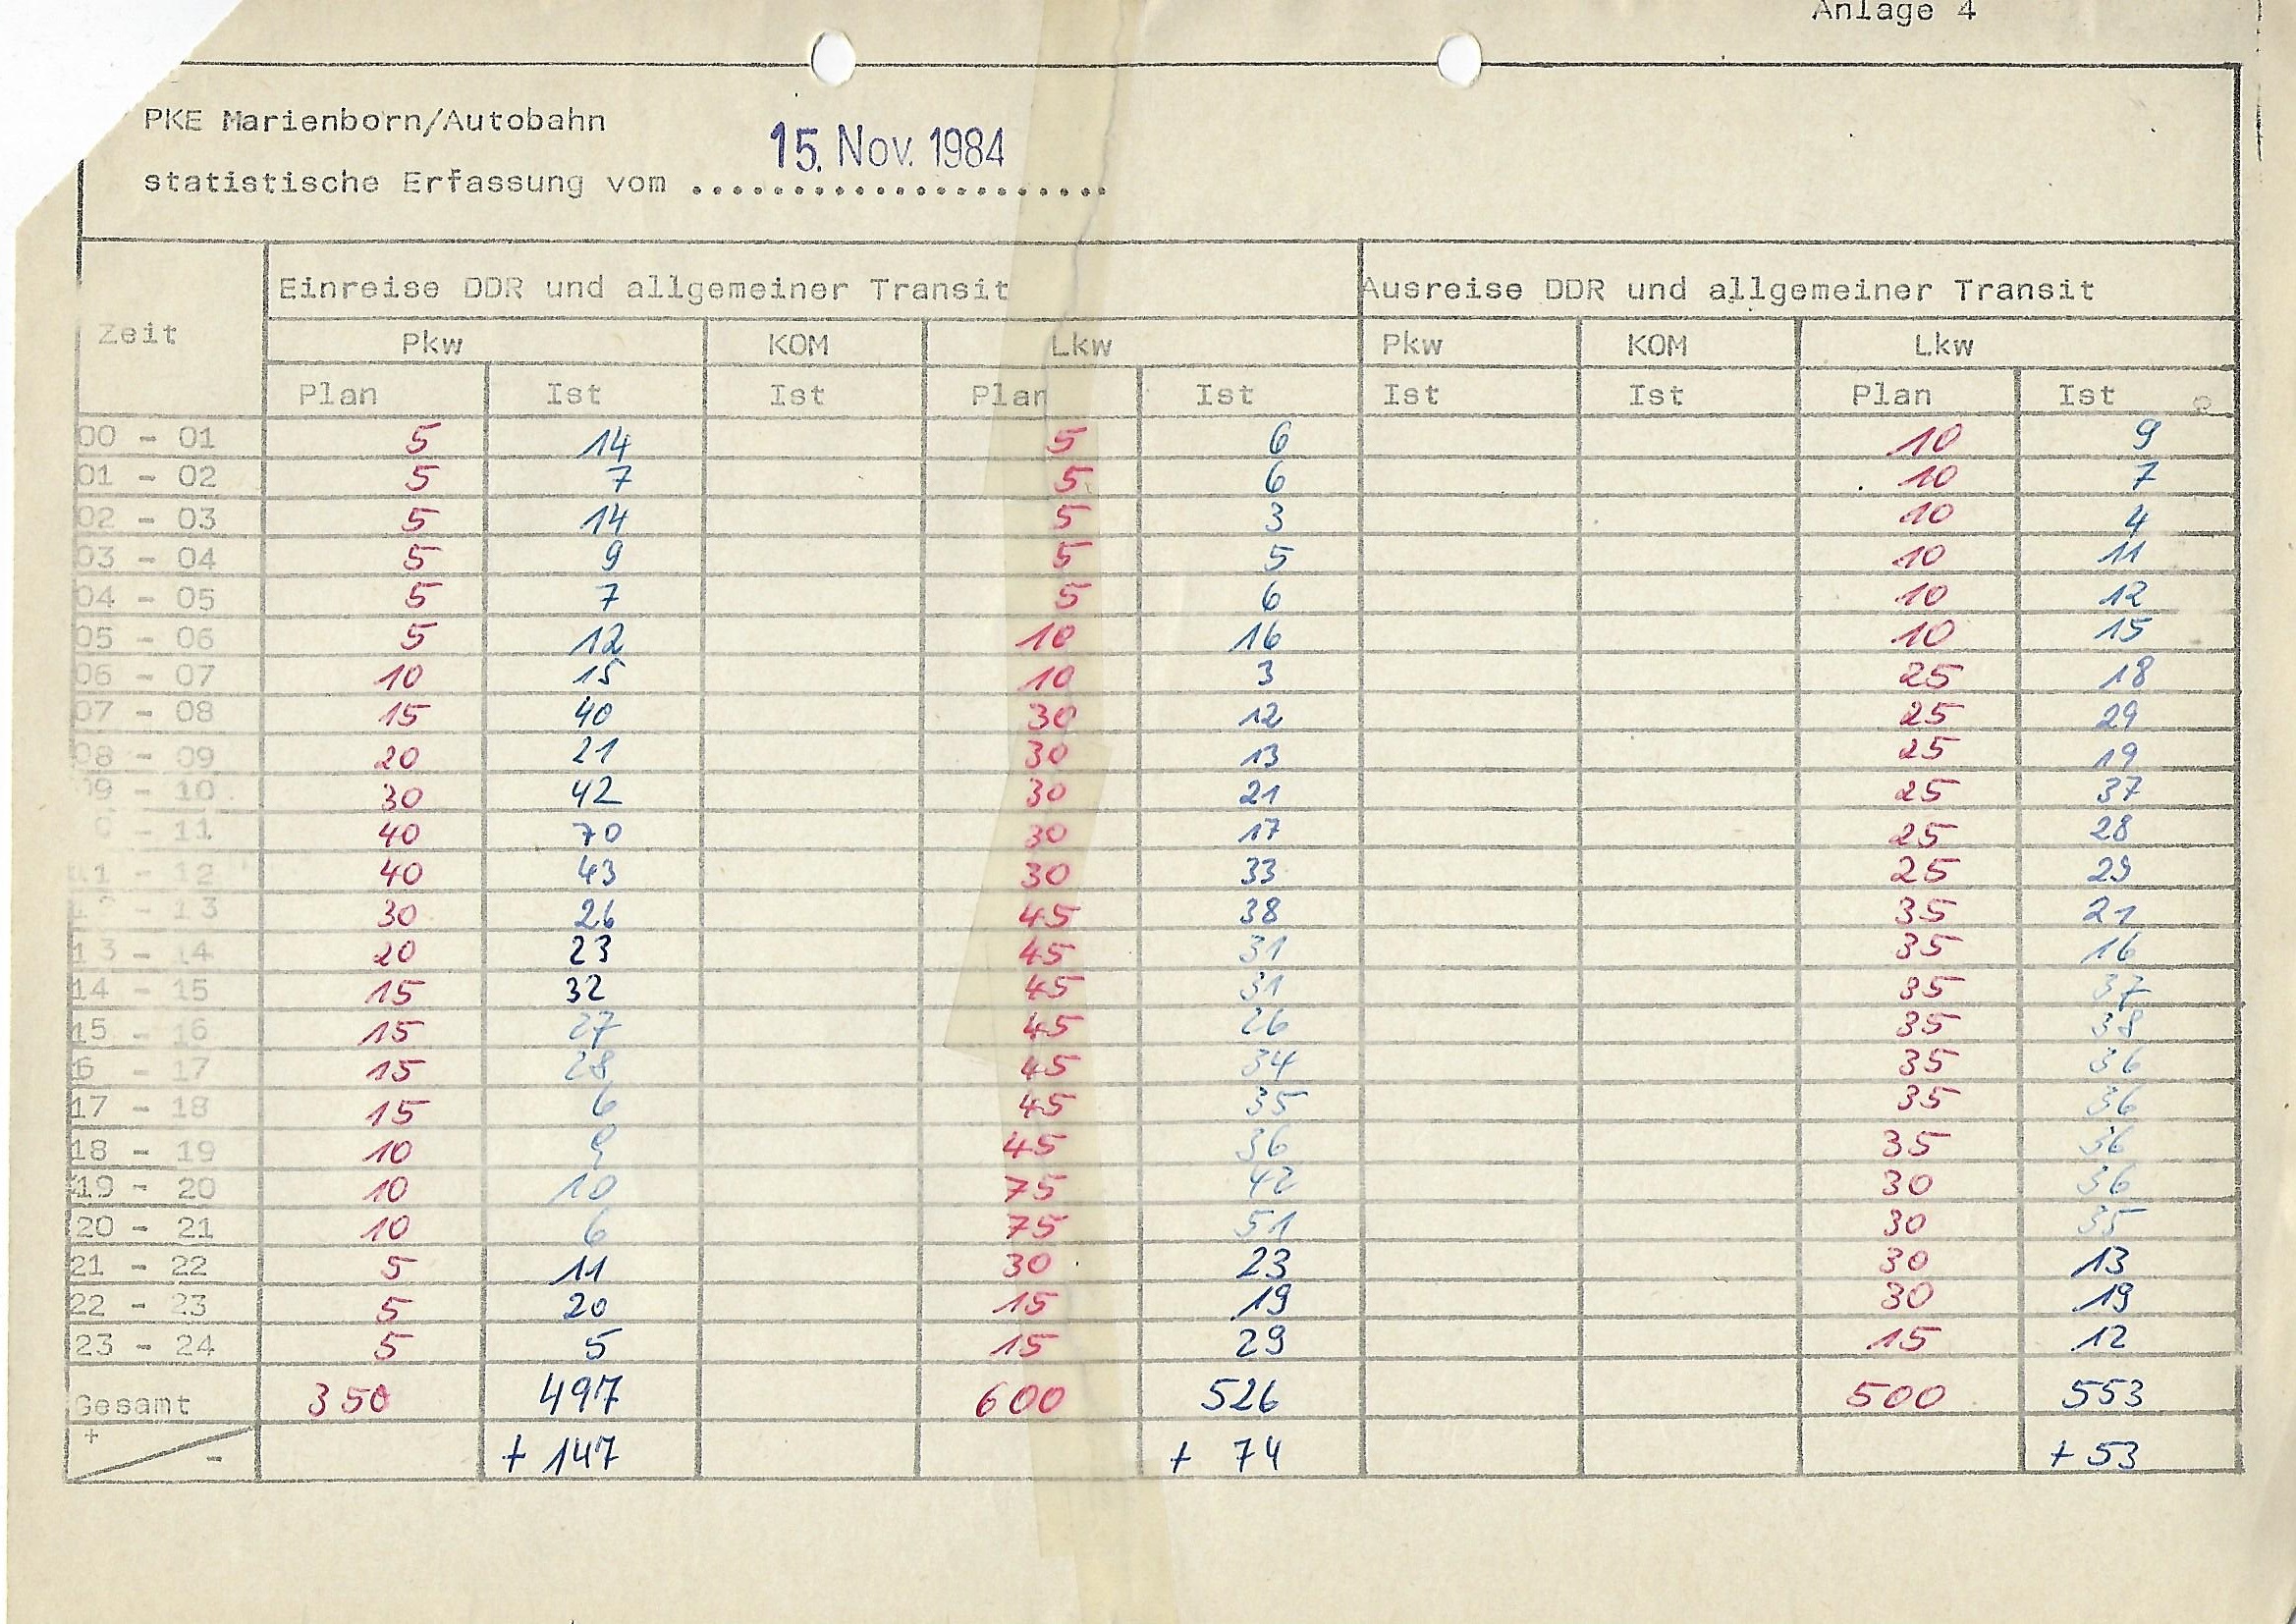 Anlage 4
PKE Marienborn/Autobahn
15. Nov. 1984
statistische Erfassung vom ......................
Einreise DDR und allgemeiner Transit Ausreise DDR und allgemeiner Transit
Zeit
Pkw KOM Lkw Pkw KOM Lkw
Plan Ist Ist Plan Ist Ist Ist Plan Ist
00 - 01 5 14 5 6 10 9
01 - 02 5 7 5 6 10 7
02 - 03 5 14 5 3 10 4
03 - 04 5 9 5 5 10 11
04 - 05 5 7 5 6 10 12
05 - 06 5 12 10 16 10 15
06 - 07 10 15 10 3 25 18
07 - 08 15 40 30 12 25 29
08 - 09 20 21 30 13 25 19
09 - 10 30 42 30 21 25 37
- 11 40 70 30 17 25 28
11 - 12 40 43 30 33 25 29
12 - 13 30 26 45 38 35 21
13 - 14 20 23 45 31 35 16
14 - 15 15 32 45 31 35 37
15 - 16 15 27 45 26 35 38
6 - 17 15 28 45 34 35 36
17 - 18 15 6 45 35 35 36
18 - 19 10 9 45 36 35 36
19 - 20 10 10 75 42 30 36
20 - 21 10 6 75 51 30 35
21 - 22 5 11 30 23 30 13
22 - 23 5 20 15 19 30 19
23 - 24 5 5 15 29 15 12
Gesamt 350 497 600 526 500 553
+ - + 147 + 74 + 53